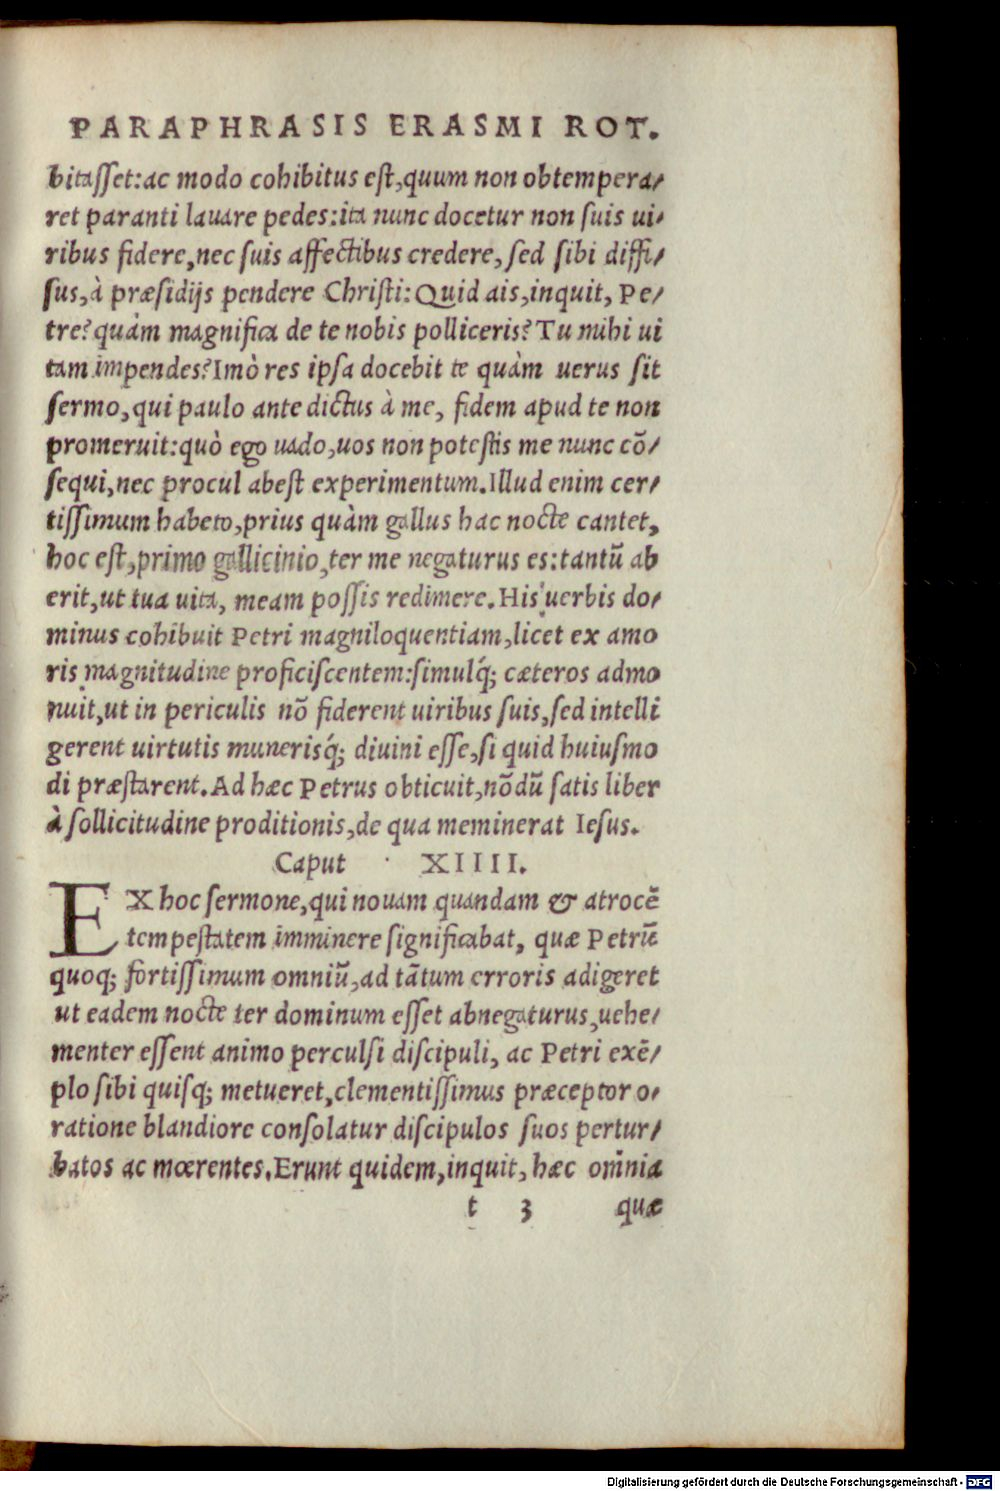 PARAPHRASIS ERASMI ROT.
bitasset:ac modo cohibitus est,quum non obtempera/
ret paranti lauare pedes:ita nunc docetur non suis ui/
ribus fidere,nec suis affectibus credere,sed sibi diffi/
sus,à præsidijs pendere Christi:Quid ais,inquit, Pe/
tre?quàm magnifica de te nobis polliceris?Tu mihi ui
tam impendes?Imò res ipsa docebit te quàm uerus sit
sermo,qui paulo ante dictus à me, fidem apud te non
promeruit:quò ego uado,uos non potestis me nunc cō/
sequi,nec procul abest experimentum.Illud enim cer/
tissimum habeto,prius quàm gallus hac nocte cantet,
hoc est,primo gallicinio,ter me negaturus es:tantū ab
erit,ut tua uita, meam possis redimere.His uerbis do/
minus cohibuit Petri magniloquentiam,licet ex amo
ris magnitudine proficiscentem:simulq́; cæteros admo
nuit,ut in periculis nō fiderent uiribus suis,sed intelli
gerent uirtutis munerisq́; diuini esse,si quid huiusmo
di præstarent.Ad hæc Petrus obticuit,nōdū satis liber
à sollicitudine proditionis,de qua meminerat Iesus.
Caput XIIII.
EX hoc sermone,qui nouam quandam & atrocē
tempestatem imminere significabat, quæ Petrū
quoq; fortissimum omniū,ad tātum erroris adigeret
ut eadem nocte ter dominum esset abnegaturus,uehe/
menter essent animo perculsi discipuli, ac Petri exē/
plo sibi quisq; metueret,clementissimus præceptor o/
ratione blandiore consolatur discipulos suos pertur/
batos ac mœrentes.Erunt quidem,inquit, hæc om̄nia
t 3 quæ
Digitalisierung gefördert durch die Deutsche Forschungsgemeinschaft - DFG